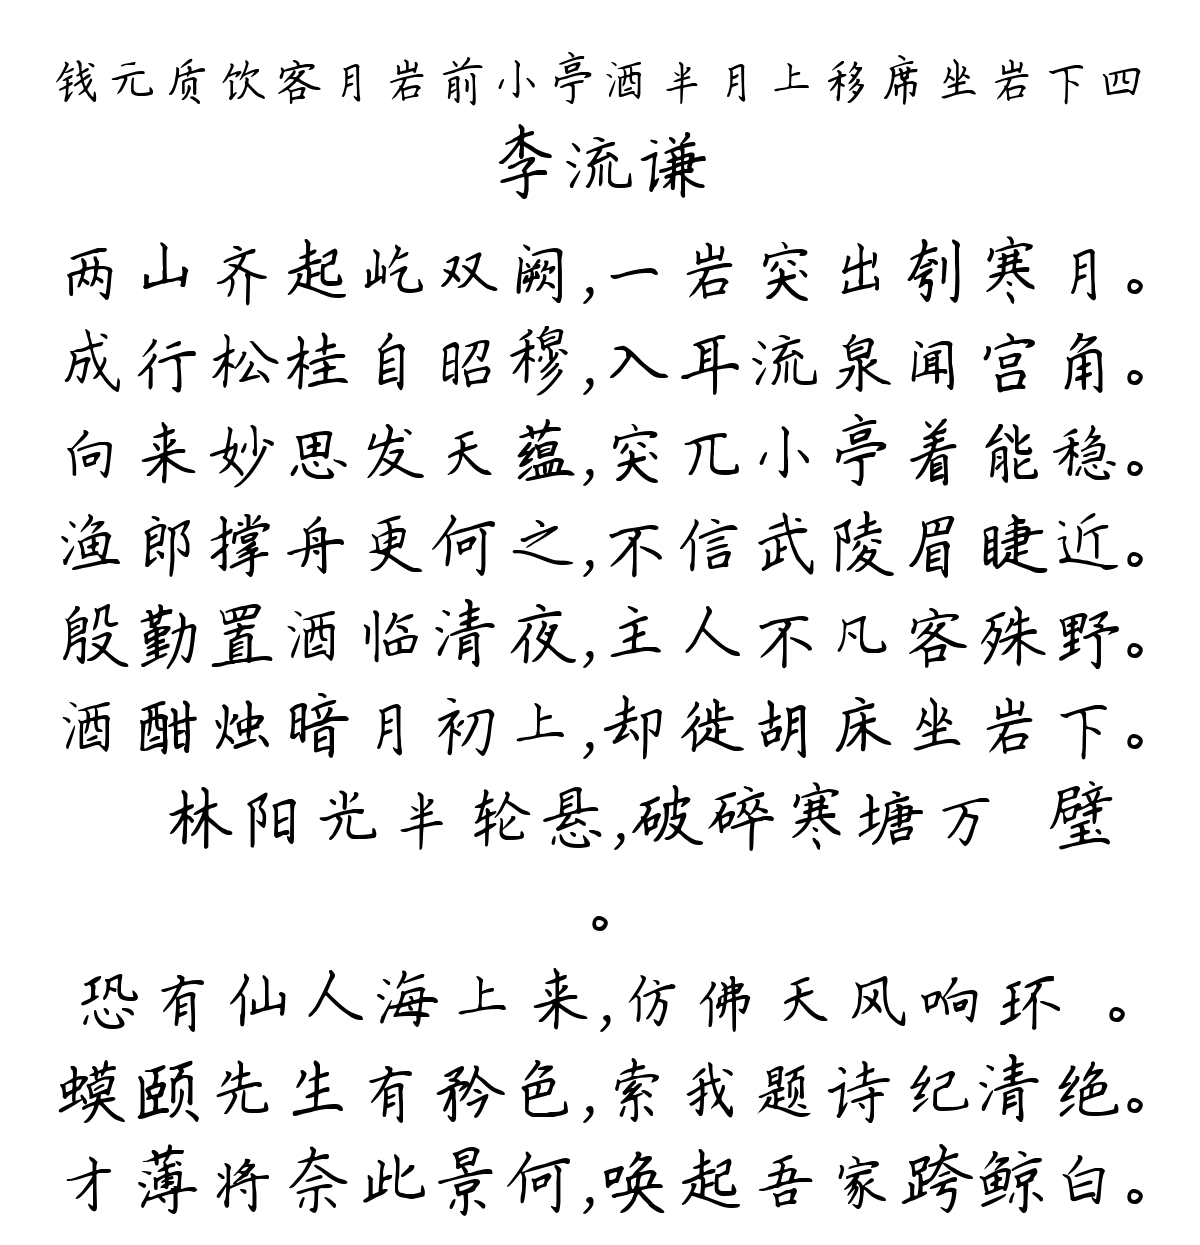 钱元质饮客月岩前小亭酒半月上移席坐岩下四
李流谦
两山齐起屹双阙,一岩突出刳寒月。
成行松桂自昭穆,入耳流泉闻宫角。
向来妙思发天蕴,突兀小亭着能稳。
渔郎撑舟更何之,不信武陵眉睫近。
殷勤置酒临清夜,主人不凡客殊野。
酒酣烛暗月初上,却徙胡床坐岩下。
林阳光半轮悬,破碎寒塘万 璧
。
恐有仙人海上来,仿佛天风响环 。
蟆颐先生有矜色,索我题诗纪清绝。
才薄将奈此景何,唤起吾家跨鲸白。